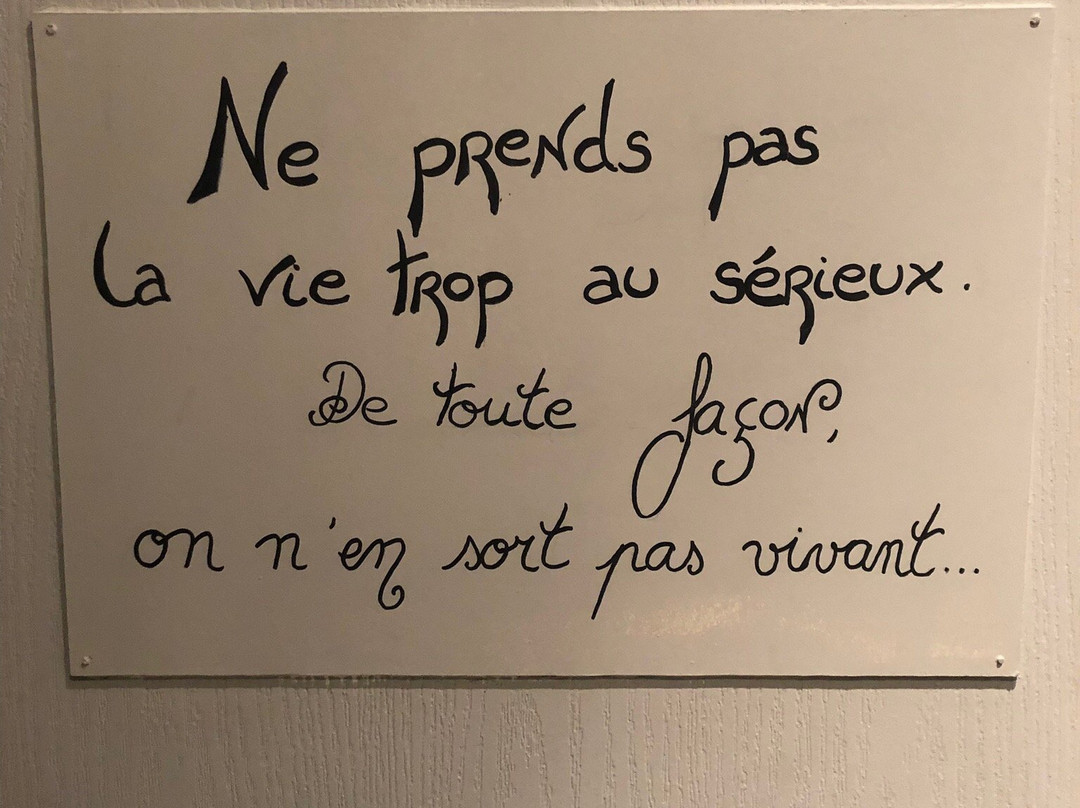 Ne prends pas
la vie trop au sérieux.
De toute façon,
on n'en sort pas vivant...